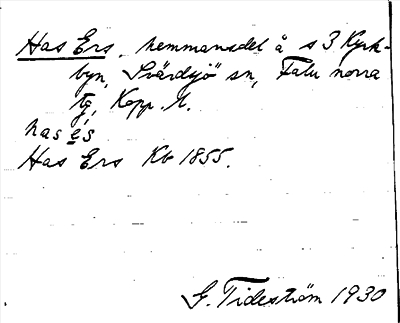 Has Ers, hemmansdel å s 3 Kyrk-
byn, Svärdsjö sn, Falu norra
tg, Kopp. l.
has e's
Has Ers Kb 1855.
G. Tideström 1930